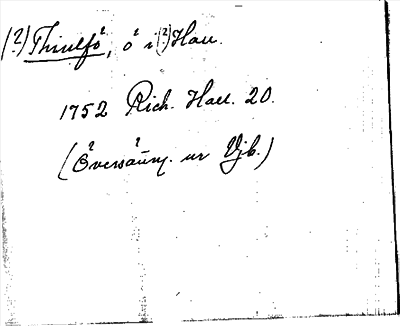 (?) Thiulfö, ö i (?) Hall.
1752 Rich. Hall. 20.
(Översänm. ur Vjb.)